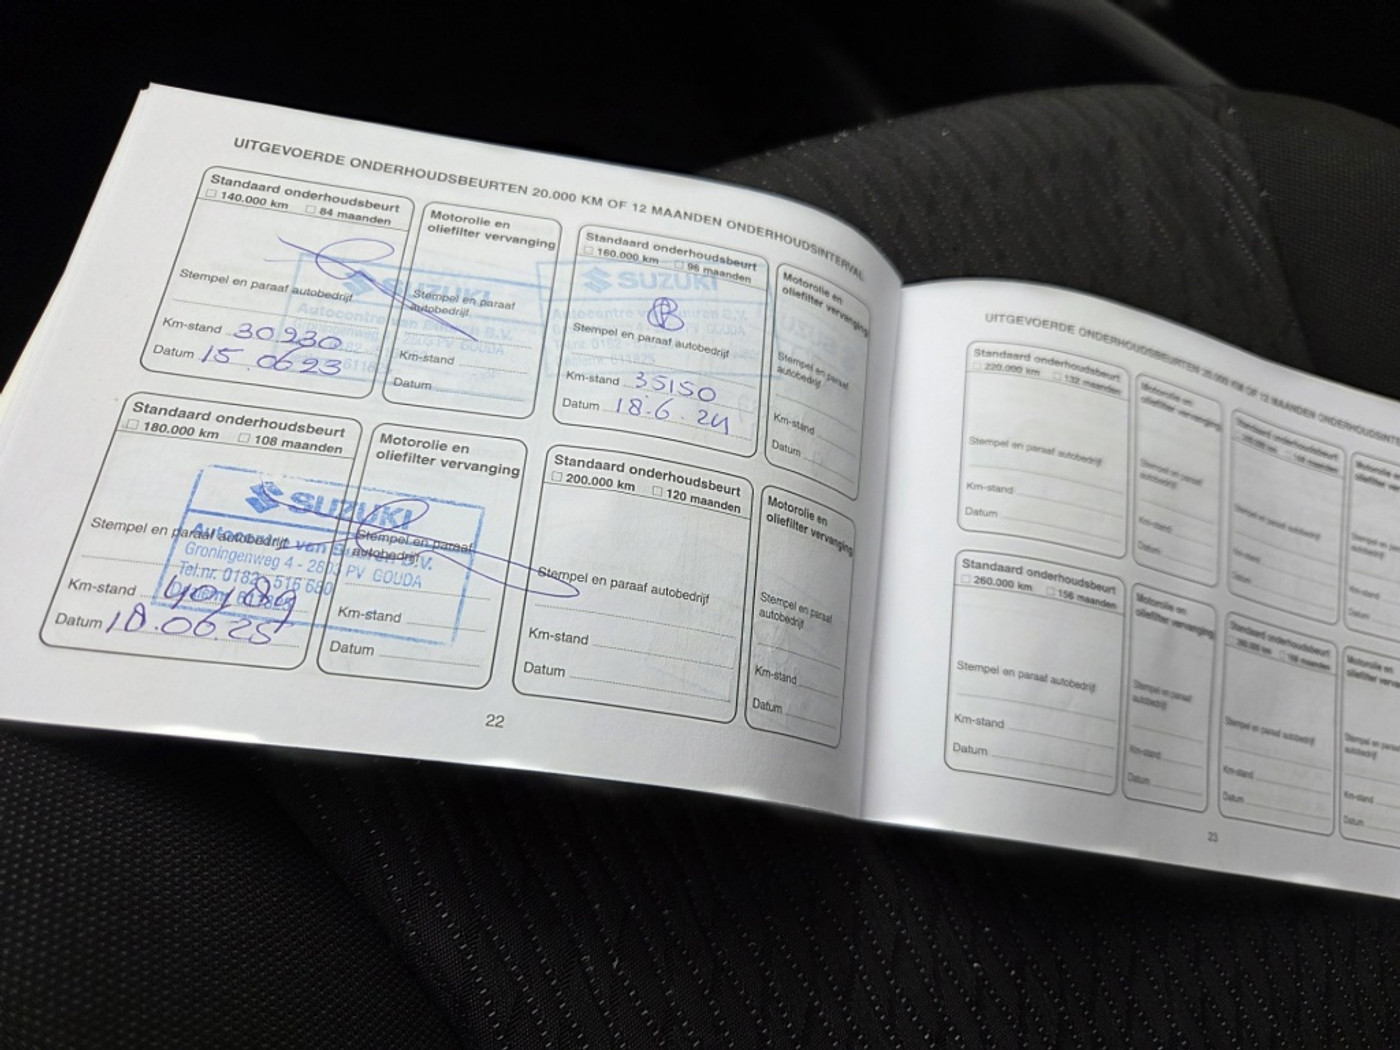 UITGEVOERDE ONDERHOUDSBEURTEN 20.000 KM OF 12 MAANDEN ONDERHOUDSINTERVAL
Standaard onderhoudsbeurt
140.000 km 84 maanden
Stempel en paraaf autobedrijf
Km-stand 30230
Datum 15.0623
Motorolie en
oliefilter vervanging
Stempel en paraaf
autobedrijf
Km-stand
Datum
SUZUKI
Autocentro van B.V.
Groningenweg 2803 PV GOUDA
Standaard onderhoudsbeurt
160.000 km 96 maanden
SUZUKI
Stempel en paraaf autobedrijf
Km-stand 35150
Datum 18.6.24
Motorolie en
oliefilter vervanging
Stempel en paraaf
autobedrijf
Km-stand
Datum
Standaard onderhoudsbeurt
180.000 km 108 maanden
Stempel en paraaf autobedrijf
Km-stand
Datum 18.06.25
Motorolie en
oliefilter vervanging
Stempel en paraaf
autobedrijf
Km-stand
Datum
SUZUKI
Autocentro van B.V.
Groningenweg 4 - 2803 PV GOUDA
Tel.nr. 0182 - 516 680
Standaard onderhoudsbeurt
200.000 km 120 maanden
Stempel en paraaf autobedrijf
Km-stand
Datum
Motorolie en
oliefilter vervanging
Stempel en paraaf
autobedrijf
Km-stand
Datum
22
UITGEVOERDE ONDERHOUDSBEURTEN 20.000 KM OF 12 MAANDEN
Standaard onderhoudsbeurt
220.000 km 132 maanden
Stempel en paraaf autobedrijf
Km-stand
Datum
Motorolie en
oliefilter vervanging
Stempel en paraaf
autobedrijf
Km-stand
Datum
Standaard onderhoudsbeurt
Stempel en paraaf autobedrijf
Km-stand
Datum
Motorolie en
Standaard onderhoudsbeurt
260.000 km 156 maanden
Stempel en paraaf autobedrijf
Km-stand
Datum
Motorolie en
oliefilter vervanging
Stempel en paraaf
autobedrijf
Km-stand
Datum
Standaard onderhoudsbeurt
Stempel en paraaf autobedrijf
Km-stand
Datum
Motorolie en
Km-stand
Datum
23